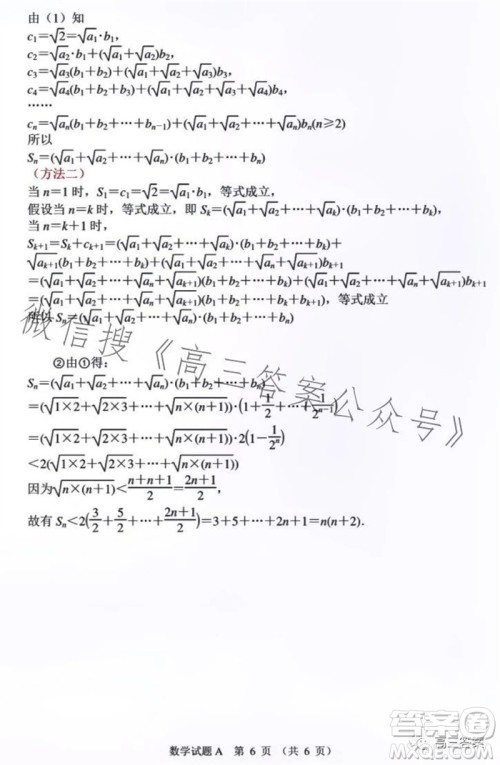 由（1）知
c₁=√2=√a₁·b₁，
c₂=√a₂·b₁+(√a₁+√a₂)b₂，
c₃=√a₃(b₁+b₂)+(√a₁+√a₂+√a₃)b₃，
c₄=√a₄(b₁+b₂+b₃)+(√a₁+√a₂+√a₃+√a₄)b₄，
……
cₙ=√aₙ(b₁+b₂+···+bₙ₋₁)+(√a₁+√a₂+···+√aₙ)bₙ(n≥2)
所以
Sₙ=(√a₁+√a₂+···+√aₙ)·(b₁+b₂+···+bₙ)
（方法二）
当 n=1 时，S₁=c₁=√2=√a₁·b₁，等式成立，
假设当 n=k 时，等式成立，即 Sₖ=(√a₁+√a₂+···+√aₖ)·(b₁+b₂+···+bₖ)，
当 n=k+1 时，
Sₖ₊₁=Sₖ+cₖ₊₁=(√a₁+√a₂+···+√aₖ)·(b₁+b₂+···+bₖ)+
√aₖ₊₁(b₁+b₂+···+bₖ)+(√a₁+√a₂+···+√aₖ+√aₖ₊₁)bₖ₊₁
=(√a₁+√a₂+···+√aₖ+√aₖ₊₁)(b₁+b₂+···+bₖ)+(√a₁+√a₂+···+√aₖ+√aₖ₊₁)bₖ₊₁
=(√a₁+√a₂+···+√aₖ+√aₖ₊₁)(b₁+b₂+···+bₖ+bₖ₊₁)，等式成立
所以 Sₙ=(√a₁+√a₂+···+√aₙ)·(b₁+b₂+···+bₙ)
②由①得：
Sₙ=(√a₁+√a₂+···+√aₙ)·(b₁+b₂+···+bₙ)
=(√(1×2)+√(2×3)+···+√(n×(n+1)))·(1+1/2+···+1/2ⁿ⁻¹)
=(√(1×2)+√(2×3)+···+√(n×(n+1)))·2(1-1/2ⁿ)
<2(√(1×2)+√(2×3)+···+√(n×(n+1)))
因为√(n×(n+1))<(n+n+1)/2=(2n+1)/2，
故有 Sₙ<2(3/2+5/2+···+(2n+1)/2)=3+5+···+2n+1=n(n+2).
微信搜《高三答案公众号》
数学试题 A 第 6 页 （共 6 页）
高三答案
答案圈
MXQE.COM